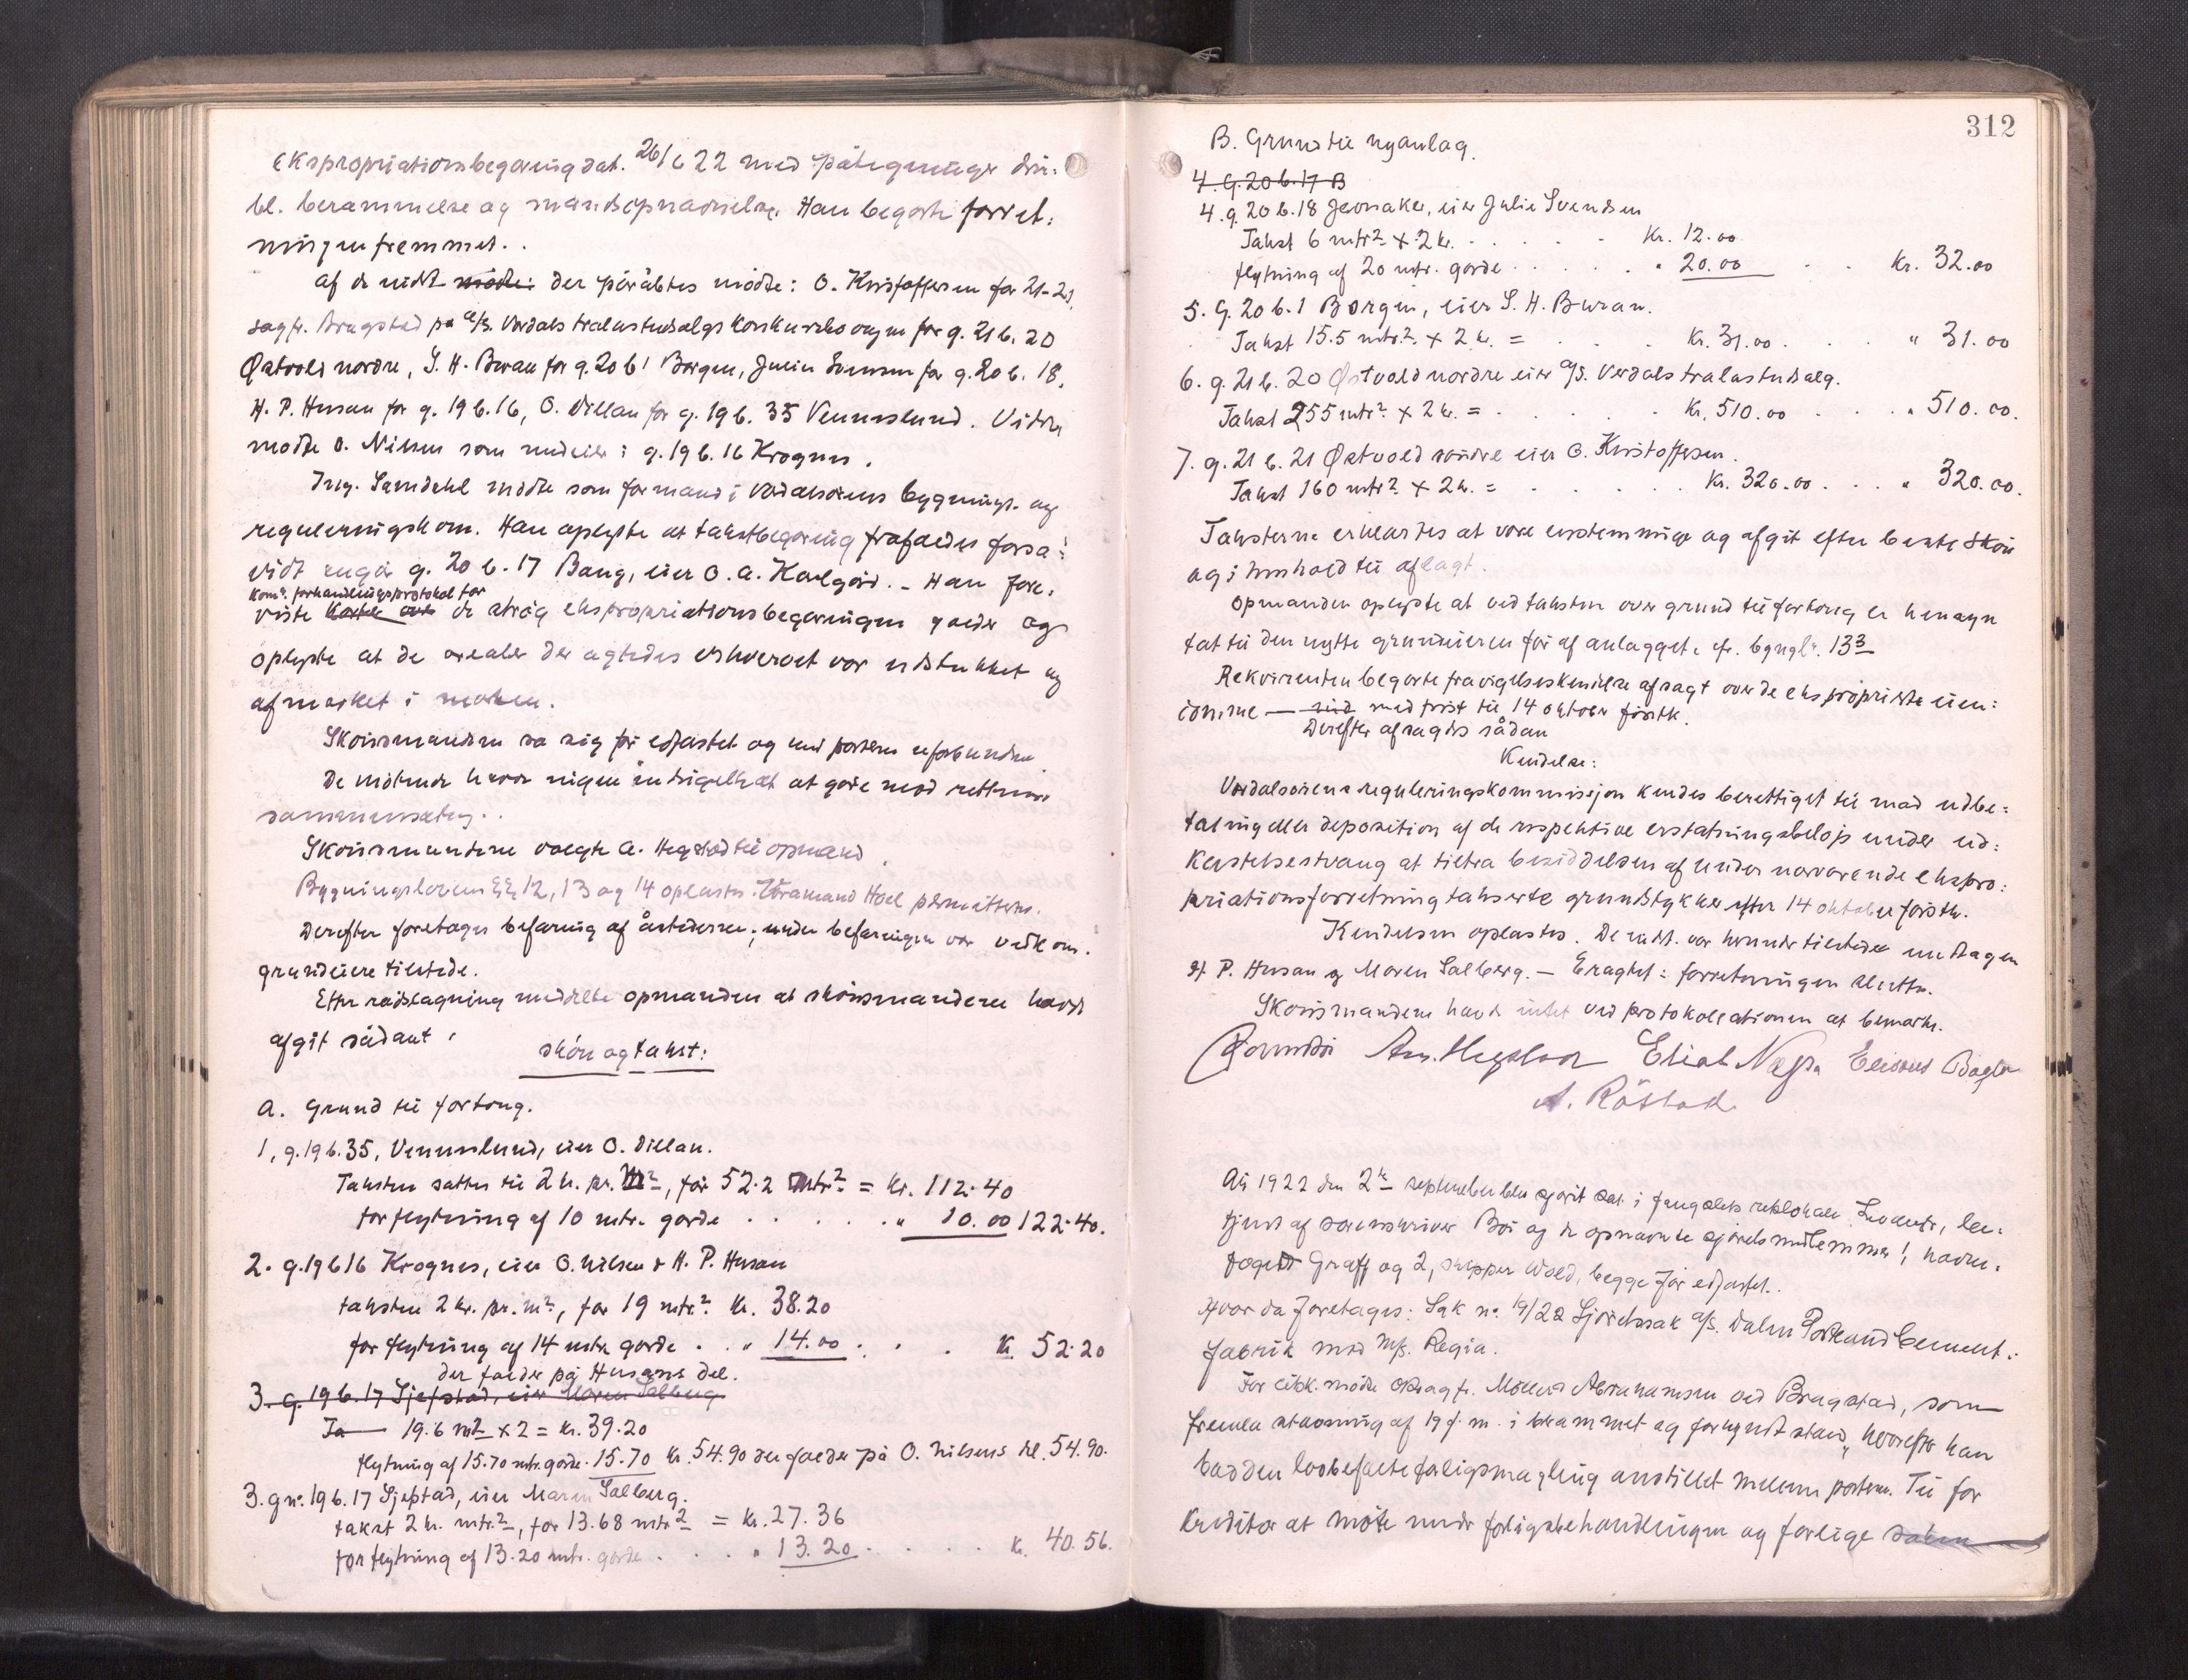 Ekspropriationsbegæring dat. 26/6 22 med påtegninger din.
bl. berammelse og mandsopnævnelse. Han begærte forret:
ningen fremmet.
Af de indk. møtte: der påråbtes mødte: O. Kristoffersen for 21-21,
sagf. Bragstad på A/S. Verdals trælastudsalgs konkursbos vegne for g. 21 b. 20
Østvold nordre, S. H. Buran for g. 20 b 1 Borgen, Julie Svensen for g. 20 b. 18,
H. P. Husan for g. 19 b. 16, O. Dillan for g. 19 b. 35 Vennuslund. Videre
mødte O. Nilsen som medeier i g. 19 b. 16 Krognes.
Ing. Sandahl mødte som formand i Verdalsørens bygnings- og
reguleringskom. Han oplyste at takstbegæring frafaldes forså:
vidt angår g. 20 b. 17 Baug, eier O. A. Karlgård. - Han fore:
kom's forhandlingsprotokol for
viste de strøg ekspropriationsbegæringen gjælder og
oplyste at de arealer der agtedes erhvervet var udstukket og
afmerket i marken.
Skjønsmændene sa sig før edfæstet og med parterne uforbundne.
De mødende havde ingen indsigelse at gøre mod rettens
sammensætning.
Skjønsmændene valgte A. Hegstad til opmand.
Bygningslovens §§ 12, 13 og 14 oplæstes. Varamand Hoel permitteres.
Derefter foretoges befaring af åstederne; under befaringen var vedkom.
grundeiere tilstede.
Efter rådslagning meddelte opmanden at skjønsmændene havde
afgit sådant:
skjøn og takst:
A. Grund til fortoug.
1, g. 19 b. 35, Vennuslund, eier O. Dillan.
Taksten sattes til 2 kr. pr. M², for 52.2 mtr² = kr. 112.40
for flytning af 10 mtr. gjerde . . . . . " 10.00 122.40.
2. g. 19 b 16 Krognes, eier O. Nilsen & H. P. Husan
taksten 2 kr. pr. m², for 19 mtr² kr. 38.20
for flytning af 14 mtr gjerde . . " 14.00 . . . kr. 52.20
der falder på Husans del.
3. g. 19 b. 17 Sjefstad, eier Maren Salberg
Ta— 19.6 m² x 2 = kr. 39.20
flytning af 15.70 mtr. gjerde. 15.70 kr. 54.90 der falder på O. Nilsens del. 54.90.
3. g no. 19 b. 17 Sjefstad, eier Maren Salberg.
takst 2 kr. mtr.², for 13.68 mtr² = kr. 27.36
for flytning af 13.20 mtr. gjerde . . . . " 13.20 . . . . kr. 40.56.
312
B. Grund til nyanlæg.
4. g. 20 b. 17 B
4. g. 20 b. 18 Jernaker, eier Julie Svendsen
Takst 6 mtr² x 2 kr. . . . . . kr. 12.00
flytning af 20 mtr. gjerde . . . . . " 20.00 . . kr. 32.00
5. g. 20 b. 1 Borgen, eier S. H. Buran.
Takst 15.5 mtr.² x 2 kr. = . . . kr. 31.00 . . . " 31.00
6. g. 21 b. 20 Østvold nordre eier A/S. Verdals trælastudsalg.
Takst 255 mtr² x 2 kr. = . . . . . kr. 510.00 . . . " 510.00.
7. g. 21 b. 21 Østvold søndre eier O. Kristoffersen.
Takst 160 mtr² x 2 kr. = . . . . . kr. 320.00 . . . " 320.00.
Taksterne erklærtes at være enstemmige og afgit efter bedste skøn
og i henhold til aflagt.
Opmanden oplyste at ved taksten over grund til fortoug er hensyn
tat til den nytte grundeieren får af anlægget, cfr. bygnl. 13³
Rekvirenten begærte fravigelseskendelse afsagt over de ekspropriérte eien:
domme — med frist til 14 oktober førstk.
Derefter afsagdes sådan
Kendelse:
Verdalsørens reguleringskommissjon kendes berettiget til mod udbe:
taling eller deposition af de respektive erstatningsbeløp under ud:
kastelsestvang at tiltræ besiddelsen af under nærværende ekspro:
priationsforretning takserte grundstykker efter 14 oktober førstk.
Kendelsen oplæstes. De indk. var herunder tilstede undtagen
H. P. Husan og Maren Salberg. — Eragtet: forretningen sluttet.
Skjønsmændene havde intet ved protokollationen at bemærke.
Arn. Hegstad Eliab Næss Elisæus Bagla
A. Røstad
År 1922 den 2. september blev sjørit sat i fængslets retslokale, Levanger, be:
tjent af sorenskriver Bøi og de opnævnte sjøretsmedlemmer 1, havne:
foged Graff og 2, skipper Wold, begge før edfæstet.
Hvor da foretoges: Sak no. 19/22 Sjøretssak A/S. Dalen Portland Cement:
fabrik mod M/S. Regia.
For citk. møtte Osagfr. Møller Abrahamsen ved Bragstad, som
fremla stævning af 19 f. m. i berammet og forkyndt stand, hvorefter han
bad den lovbefalte forligsmægling anstillet mellem parterne. Til for
kreditor at møte under forligsbehandlingen og forlige saken